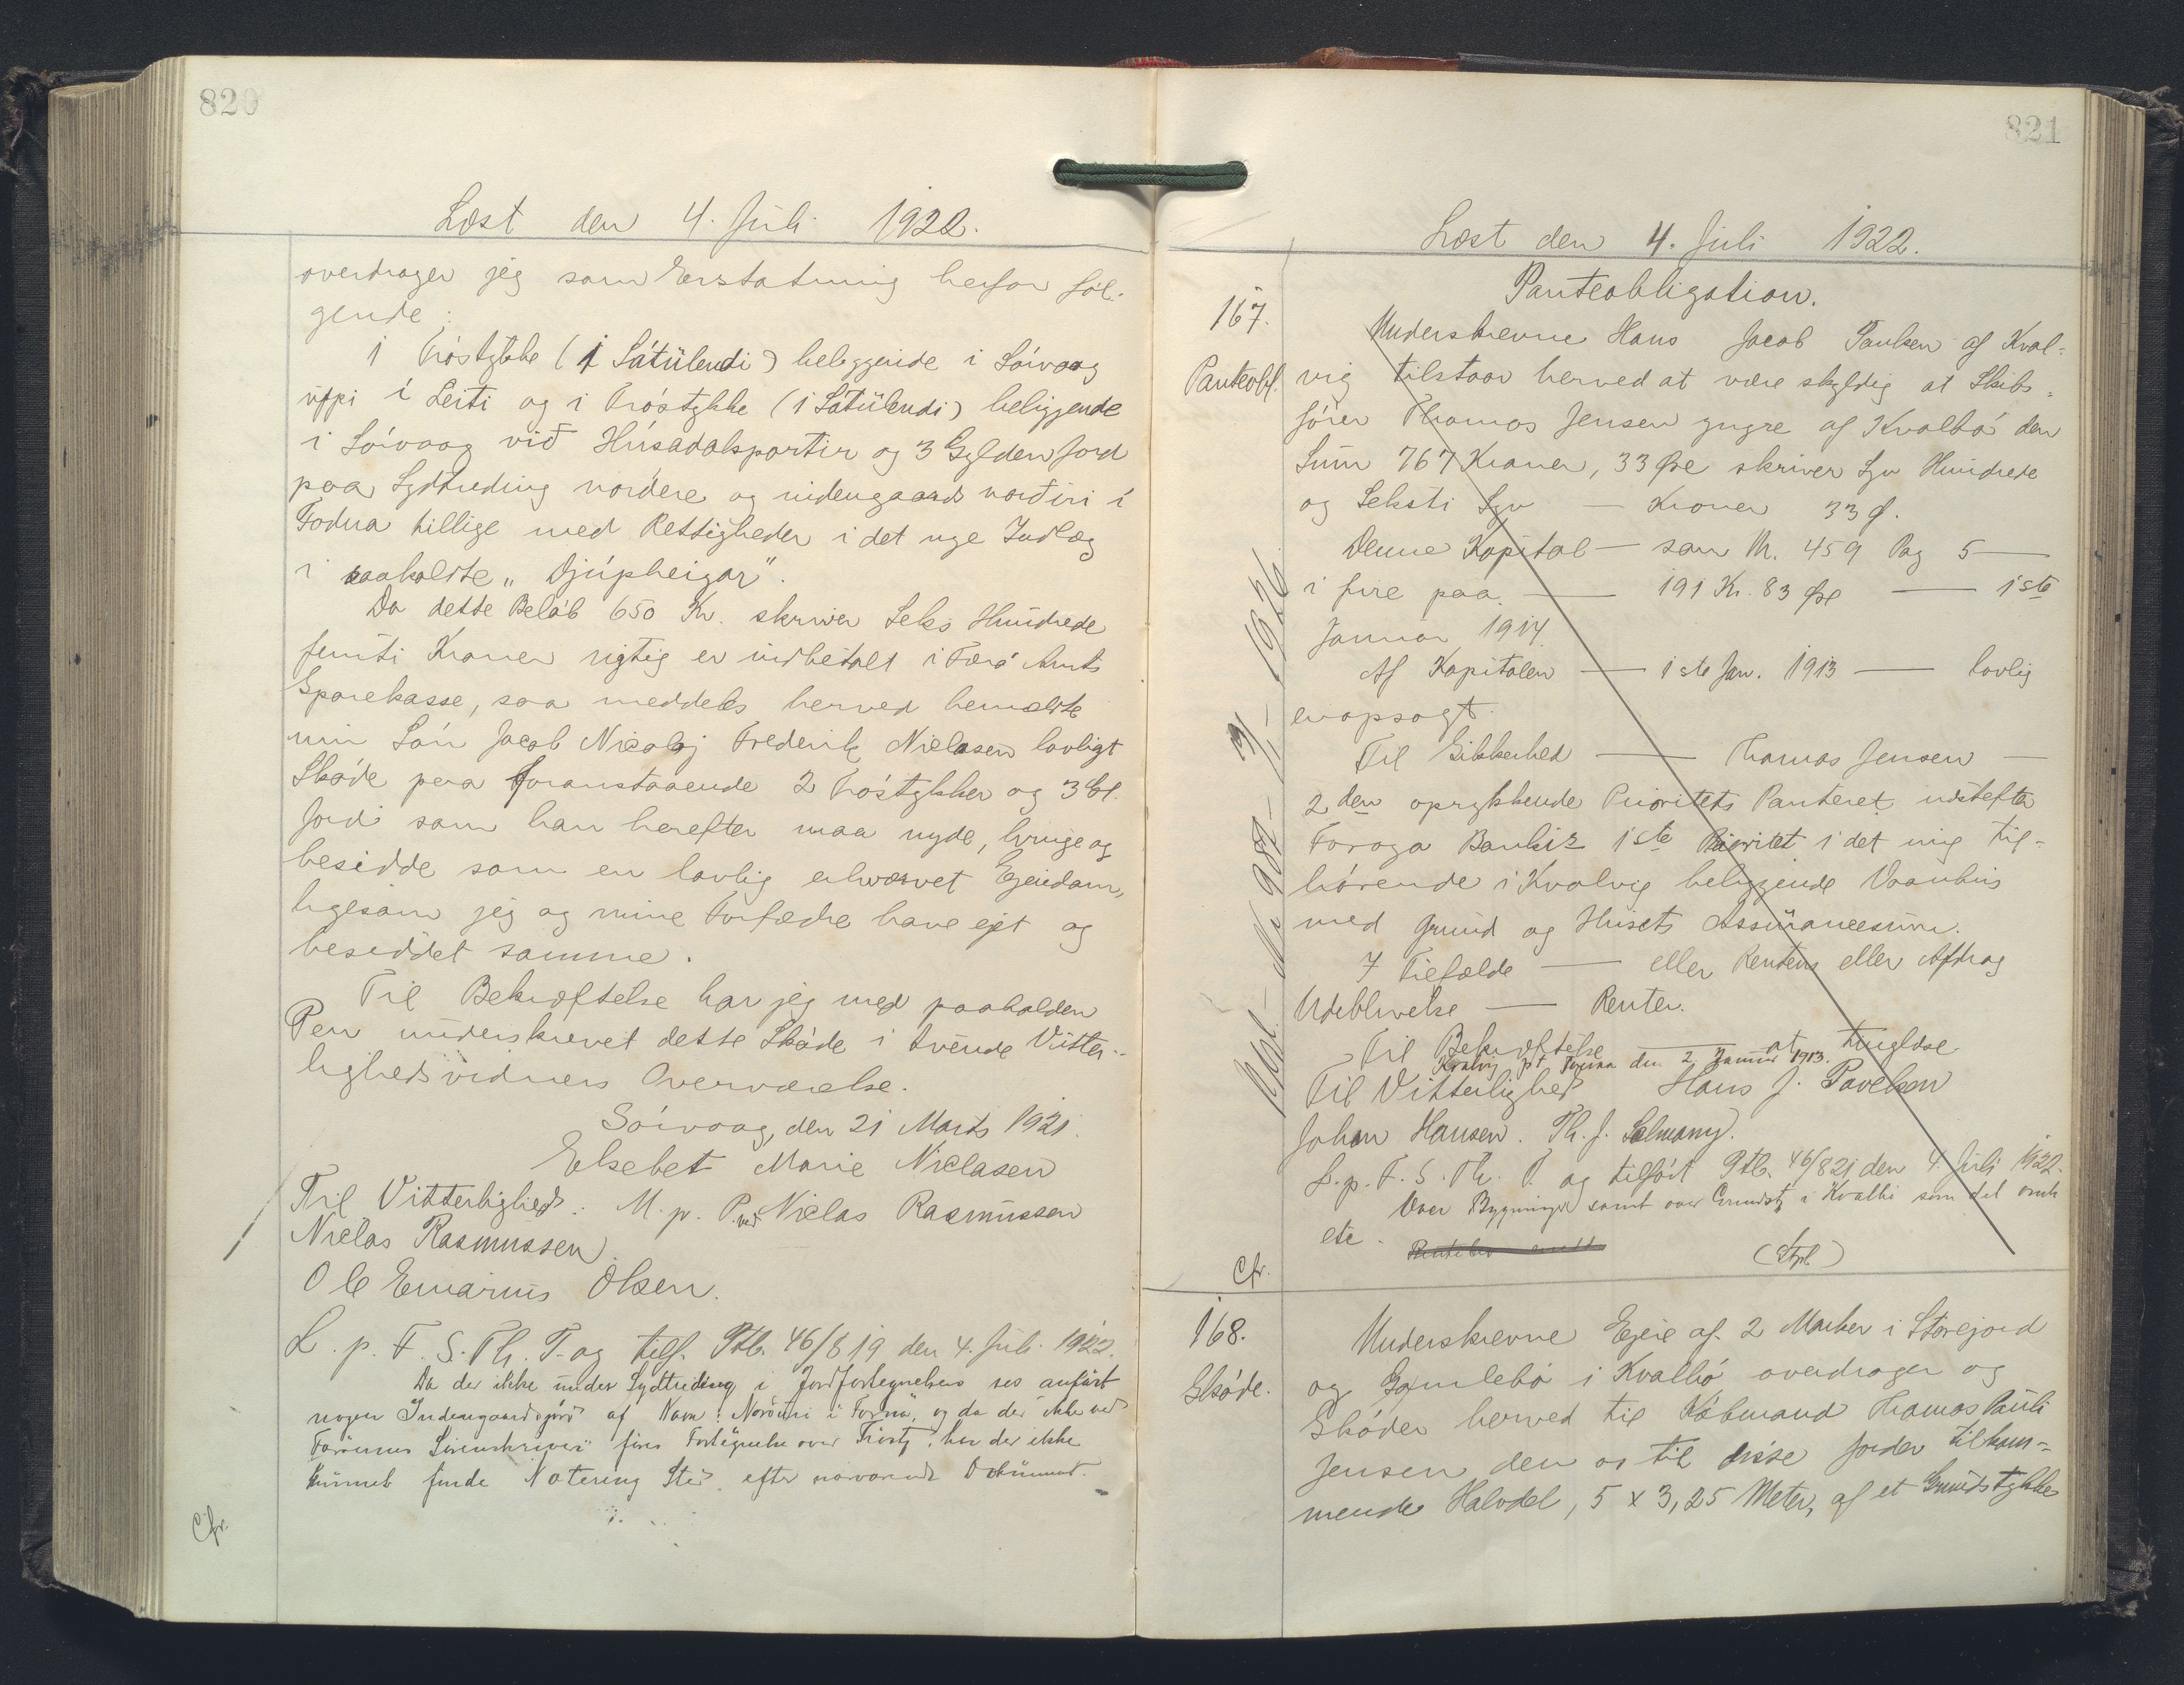 820
Læst den 4. Juli 1922.
overdrager jeg som Erstatning herfor føl-
gende:
1 Tróstykke (í Sátülendi) beliggende i Sórvaag
uppi í Leiti og i Tróstykke (i Sátülendi) beliggende
i Sórvaag við Húsadalsportir og 3 Gylden Jord
paa Sydtreding nordere og indengaards norðiri í
Todna tillige med Rettigheder i det nye Indlæg
i saakaldte „Djúpheigar".
Da dette Beløb 650 Kr. skriver Seks Hundrede
femti Kroner rigtig er indbetalt i Færø Amts
Sparekasse, saa meddeles herved bemeldte
min Søn Jacob Nicolaj Frederik Niclasen lovligt
Skøde paa foranstaaende 2 Tróstykker og 3 Gl.
Jord som han herefter maa nyde, bruge og
besidde som en lovlig erhvervet Ejendom,
ligesom jeg og mine Forfædre have ejet og
besiddet samme.
Til Bekræftelse har jeg med paaholden
Pen underskrevet dette Skøde i tvende Vitter-
lighedsvidners Overværelse.
Sórvaag, den 21 Marts 1921.
Elsebet Marie Niclasen
Til Vitterlighed: M. p. P. ved Niclas Rasmussen
Niclas Rasmussen
Ole Emarius Olsen.
L. p. F. S. Th. T. og tilf. Ptb. 46/819 den 4. Juli 1922.
Da der ikke under Sydtreding i Jordfortegnelsen ses anført
nogen Indengaardsjord af Navn: Norðuri i Forna", og da der ikke ved
Færøernes Sorenskriveri føres Fortegnelse over Tróst, har der ikke
kunnet finde Notering Sted efter nærværende Dokument.
Cfr.
821
Læst den 4. Juli 1922.
Panteobligation.
167.
Panteobl.
Underskrevne Hans Jacob Paulsen af Kval-
vig tilstaar herved at være skyldig at Skibs-
fører Thomas Jensen yngre af Kvalbø den
Sum 767 Kroner, 33 Øre skriver Syv Hundrede
og Seksti Syv — Kroner 33 Ø.
Denne Kapital — som Nr. 459 Pag 5 —
i fire paa — 191 Kr. 83 Øre — 1ste
Januar 1914.
Af Kapitalen — 1ste Jan. 1913 — lovlig
er opsagt.
Til Sikkerhed — Thomas Jensen —
2den oprykkende Prioritets Panteret næstefter
Foroya Banki's 1ste Prioritet i det mig til-
hørende i Kvalvig beliggende Vaanhus
med Grund og Husets Assüranceesum.
I Tilfælde — eller Rentens eller Afdrag
Udeblivelse — Renter.
Til Bekræftelse — at tinglæse
Kvalvig pt Tvøraa den 2 Januar 1913.
Til Vitterlighed Hans J. Pavelsen
Johan Hansen. Th. J. Salmany.
L. p. F. S. Th. T. og tilført Ptb. 46/821 den 4. Juli 1922.
Over Bygninger samt over Grundst. i Kvalbø som del
etc.
(Stpl.)
Cfr.
168.
Skøde.
Underskrevne Ejere af 2 Marker i Storejord
og Gamlebø i Kvalbø overdrager og
Skøder herved til Købmand Thomas Pauli
Jensen den os til disse Jorder tilkom-
mende Halvdel, 5 x 3,25 Meter, af et Grundstykke